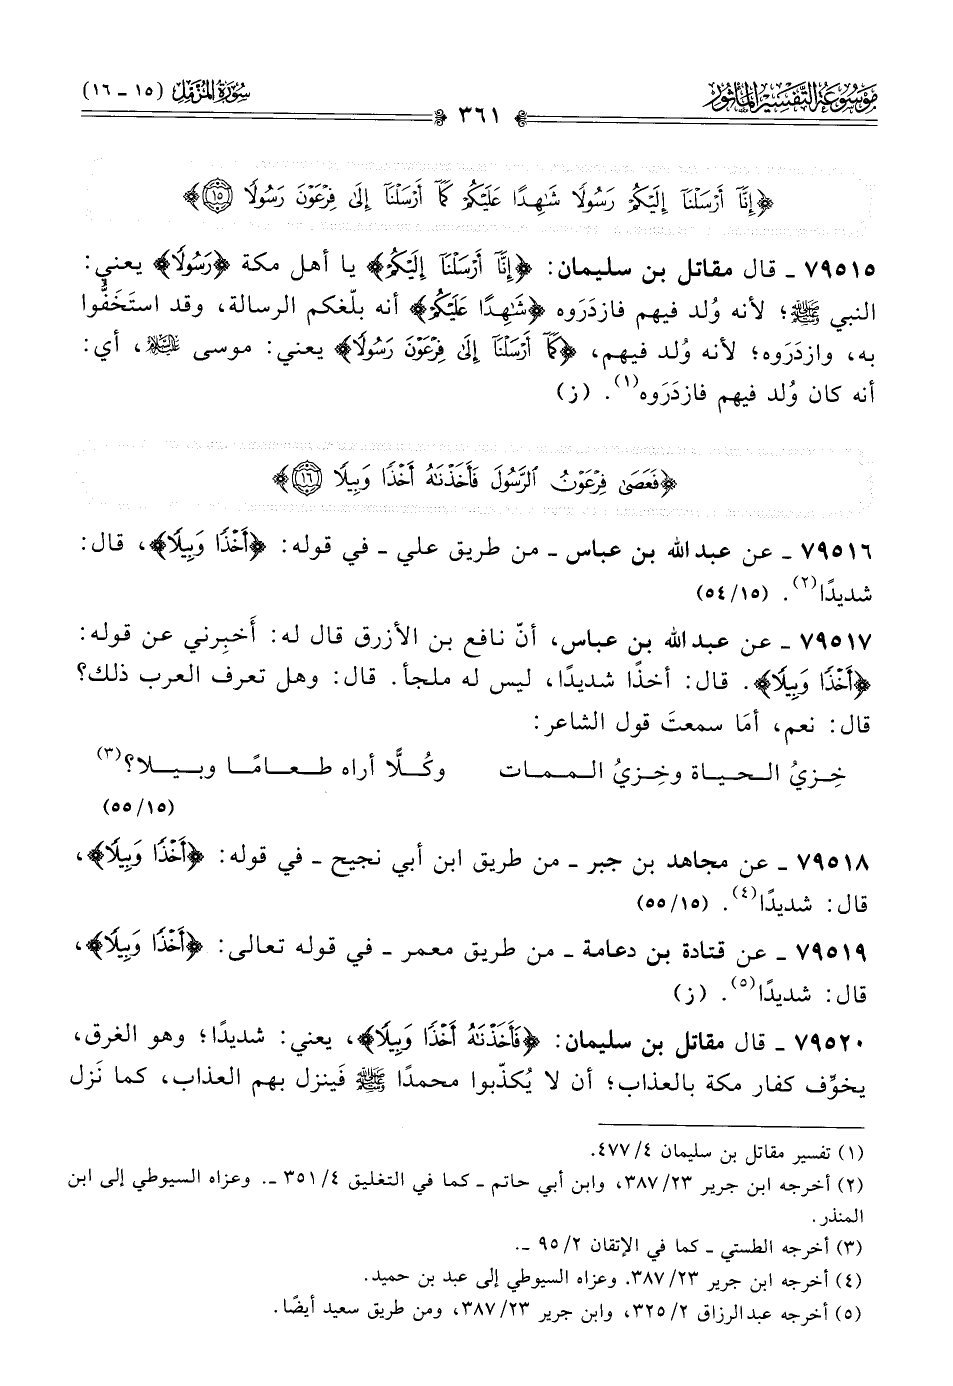 موسوعة التفسير المأثور
٣٦١
سورة المزمل (١٥ - ١٦)
﴿إِنَّا أَرْسَلْنَا إِلَيْكُمْ رَسُولًا شَاهِدًا عَلَيْكُمْ كَمَا أَرْسَلْنَا إِلَى فِرْعَوْنَ رَسُولًا ١٥﴾
٧٩٥١٥ ـ قال مقاتل بن سليمان: ﴿إِنَّا أَرْسَلْنَا إِلَيْكُمْ﴾ يا أهل مكة ﴿رَسُولًا﴾ يعني:
النبي ﷺ؛ لأنه وُلد فيهم فازدَرَوه ﴿شَاهِدًا عَلَيْكُمْ﴾ أنه بلّغكم الرسالة، وقد استَخَفُّوا
به، وازدَرَوه؛ لأنه وُلد فيهم، ﴿كَمَا أَرْسَلْنَا إِلَى فِرْعَوْنَ رَسُولًا﴾ يعني: موسى عليه السلام، أي:
أنه كان وُلد فيهم فازدَرَوه(١). (ز)
﴿فَعَصَى فِرْعَوْنُ الرَّسُولَ فَأَخَذْنَاهُ أَخْذًا وَبِيلًا ١٦﴾
٧٩٥١٦ ـ عن عبد الله بن عباس ـ من طريق علي ـ في قوله: ﴿أَخْذًا وَبِيلًا﴾، قال:
شديدًا(٢). (١٥/ ٥٤)
٧٩٥١٧ ـ عن عبد الله بن عباس، أنّ نافع بن الأزرق قال له: أَخبِرني عن قوله:
﴿أَخْذًا وَبِيلًا﴾. قال: أخذًا شديدًا، ليس له ملجأ. قال: وهل تعرف العرب ذلك؟
قال: نعم، أمَا سمعتَ قول الشاعر:
خِزيُ الحياة وخِزيُ الممات وكُلًّا أراه طعامًا وبيلا؟(٣)
(١٥/ ٥٥)
٧٩٥١٨ ـ عن مجاهد بن جبر ـ من طريق ابن أبي نجيح ـ في قوله: ﴿أَخْذًا وَبِيلًا﴾،
قال: شديدًا(٤). (١٥/ ٥٥)
٧٩٥١٩ ـ عن قتادة بن دعامة ـ من طريق معمر ـ في قوله تعالى: ﴿أَخْذًا وَبِيلًا﴾،
قال: شديدًا(٥). (ز)
٧٩٥٢٠ ـ قال مقاتل بن سليمان: ﴿فَأَخَذْنَاهُ أَخْذًا وَبِيلًا﴾، يعني: شديدًا؛ وهو الغرق،
يخوِّف كفار مكة بالعذاب؛ أن لا يُكذّبوا محمدًا ﷺ فَينزل بهم العذاب، كما نَزل
(١) تفسير مقاتل بن سليمان ٤/ ٤٧٧.
(٢) أخرجه ابن جرير ٢٣/ ٣٨٧، وابن أبي حاتم ـ كما في التغليق ٤/ ٣٥١ ـ. وعزاه السيوطي إلى ابن
المنذر.
(٣) أخرجه الطستي ـ كما في الإتقان ٢/ ٩٥ ـ.
(٤) أخرجه ابن جرير ٢٣/ ٣٨٧. وعزاه السيوطي إلى عبد بن حميد.
(٥) أخرجه عبدالرزاق ٢/ ٣٢٥، وابن جرير ٢٣/ ٣٨٧، ومن طريق سعيد أيضًا.